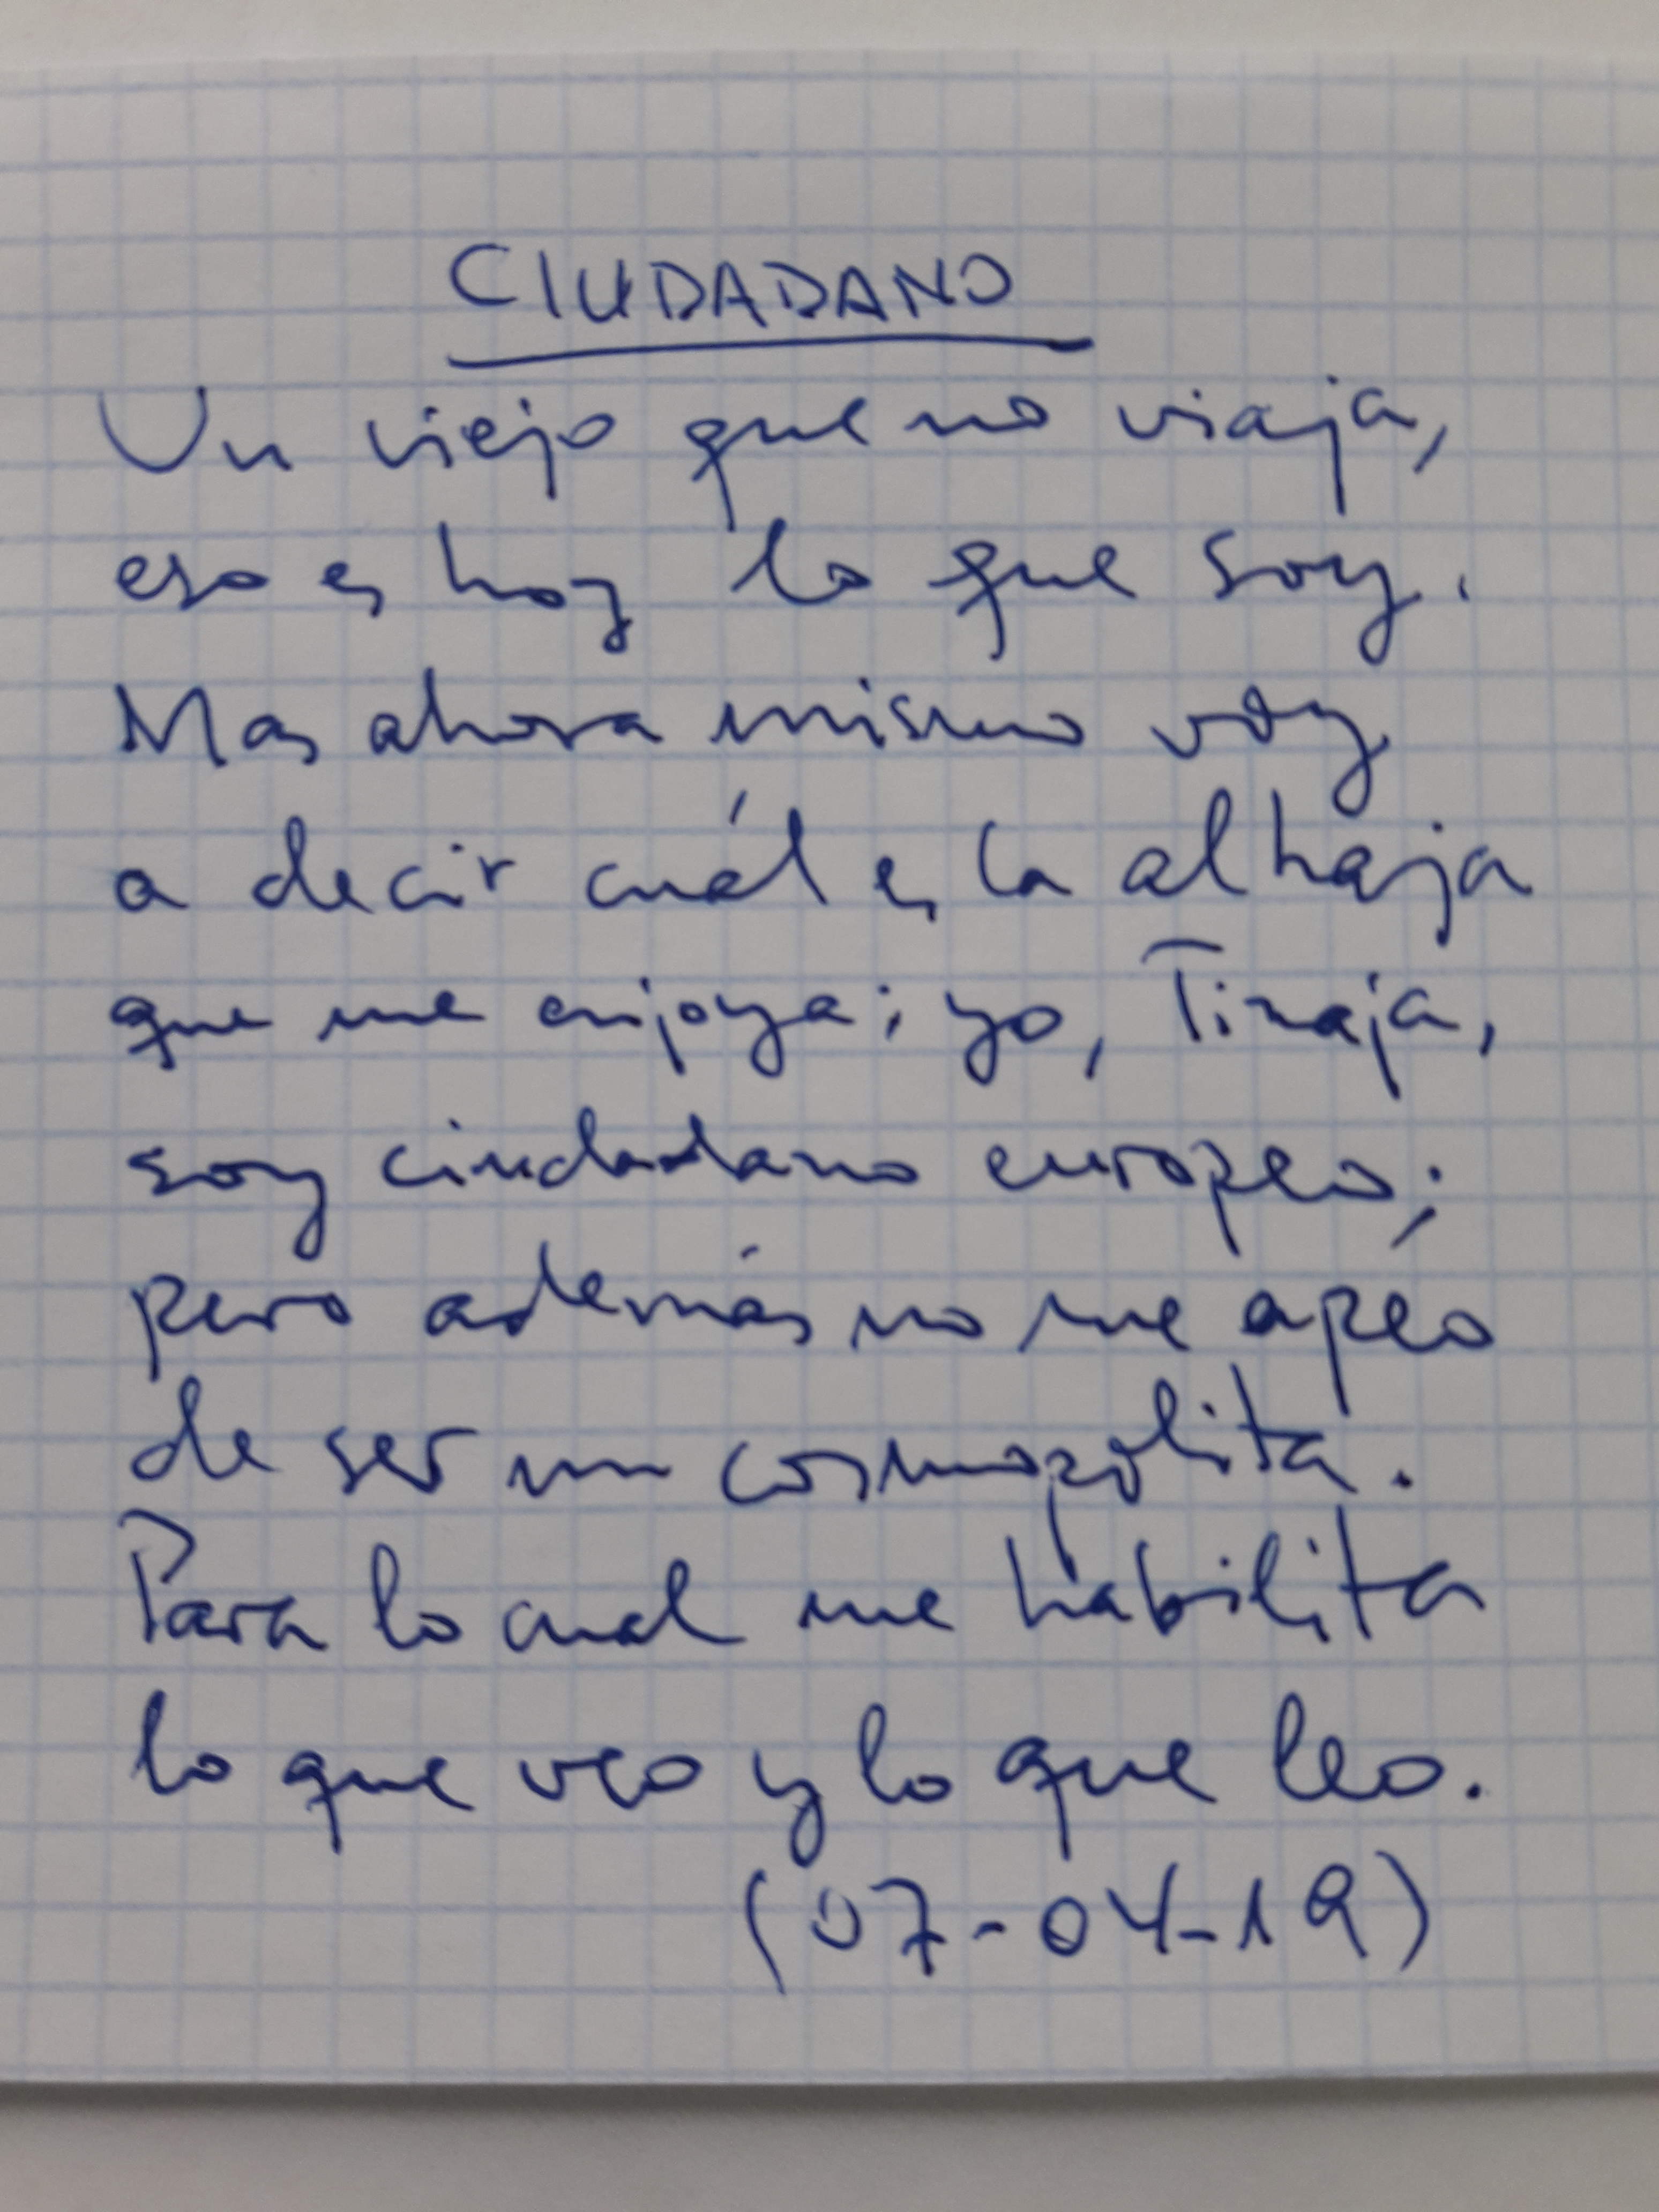 CIUDADANO
Un viejo que no viaja,
eso es hoy lo que soy.
Mas ahora mismo voy
a decir cuál es la alhaja
que me enjoya: yo, Tinaja,
soy ciudadano europeo;
pero además no me apeo
de ser un cosmopolita.
Para lo cual me habilita
lo que veo y lo que leo.
(07-04-19)